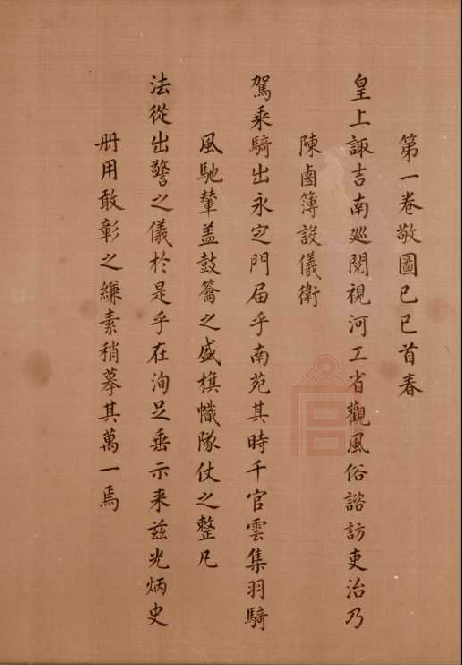 第一卷敬圖己巳首春
皇上諏吉南巡閱視河工省觀風俗諮訪吏治乃
陳鹵簿設儀衛
駕乘騎出永定門届乎南苑其時千官雲集羽騎
風馳輦盖鼓籥之盛旗幟隊仗之整凡
法從出警之儀於是乎在洵足垂示来茲光炳史
冊用敢彰之縑素稍摹其萬一焉